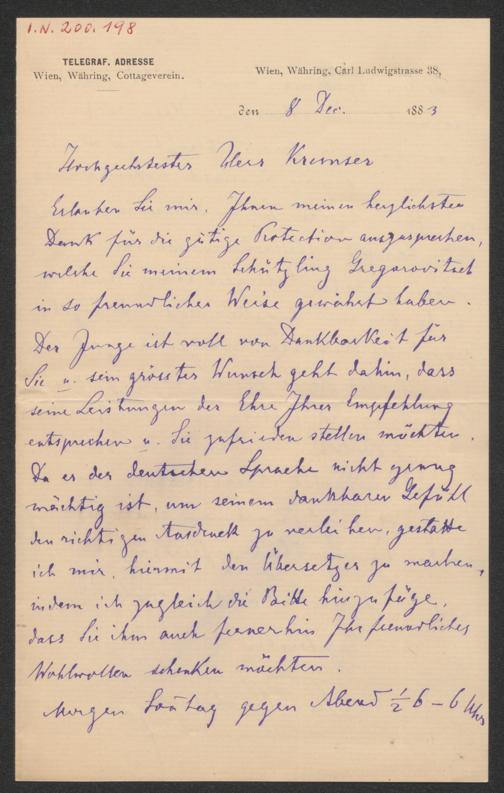 I.N. 200.198
TELEGRAF. ADRESSE
Wien, Währing, Cottageverein.
Wien, Währing, Carl Ludwigstrasse 38,
den 8 Dec. 1883
Hochgeehrtester Herr Kremser
Erlauben Sie mir, Ihnen meinen herzlichsten
Dank für die gütige Protection auszusprechen,
welche Sie meinem Schützling Gregorovitsch
in so freundlicher Weise gewährt haben.
Der Junge ist voll von Dankbarkeit für
Sie u. sein grösster Wunsch geht dahin, dass
seine Leistungen der Ehre Ihrer Empfehlung
entsprechen u. Sie zufrieden stellen möchten.
Da er der deutschen Sprache nicht genug
mächtig ist, um seinem dankbaren Gefühl
den richtigen Ausdruck zu verleihen, gestatte
ich mir, hiermit den Übersetzer zu machen,
indem ich zugleich die Bitte hinzufüge,
dass Sie ihm auch fernerhin Ihr freundliches
Wohlwollen schenken möchten.
Morgen Soñtag gegen Abend ½ 6 – 6 Uhr